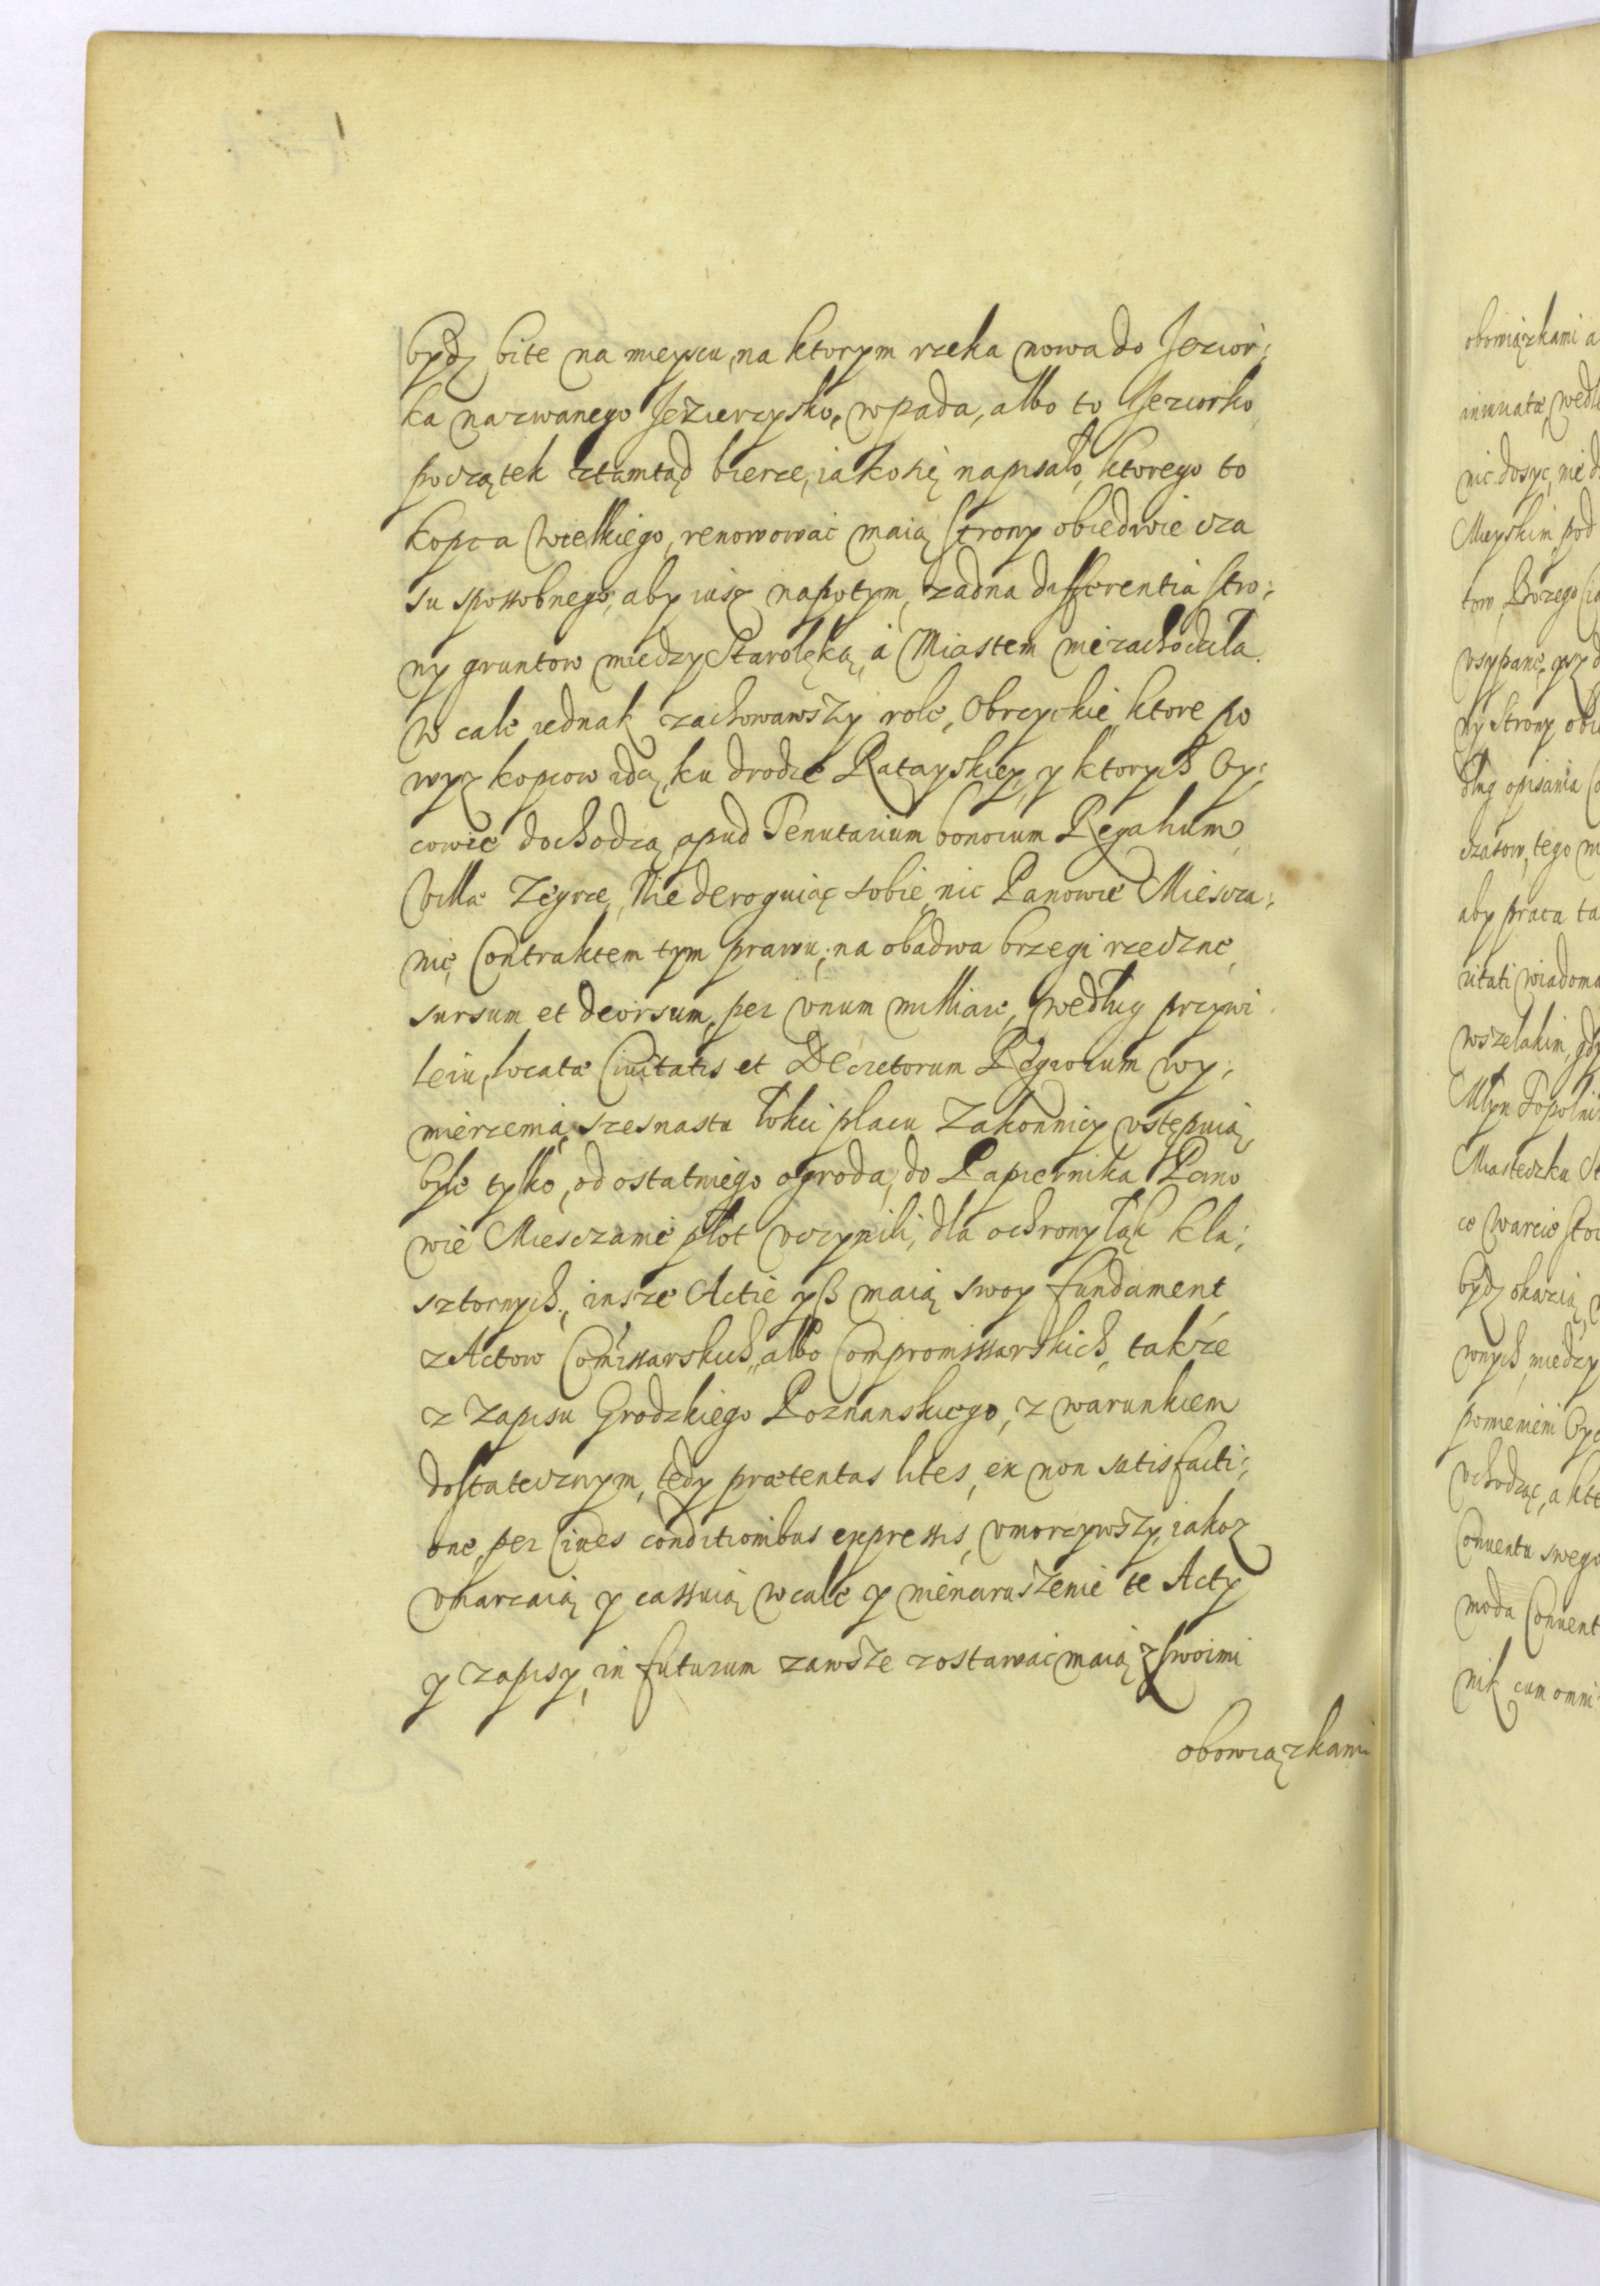 bydź bite na mieyscu, na ktorym rzeka nowa do Jezior:
ka nazwanego Jezierzysko, wpada, albo to Jeziorko,
początek ztamtąd bierze, iako się napisało, ktorego to
kopca wielkiego, renowować maią strony obiedwie cza
su spossobnego, aby iusz napotym, żadna differentia stro:
ny gruntow między Starolęką, á Miastem niezachodziła.
W cale iednak zachowawszy role, Obrzyckie, ktore po
wyz kopcow idą, ku drodze Ratayskiey, y ktorych Oy:
cowie dochodzą, apud Tenutarium bonorum Regalium,
Villæ Zegrze, Nie deroguiąc sobie, nic Panowie Miescza:
nie, Contraktem tym prawu, na obadwa brzegi rzeczne,
sursum et deorsum, per vnum milliare, według przywi
leiu, locatæ Ciuitatis et Decretorum Regiorum wy:
mierzenia, szesnastu łokci placu Zakonnicy vstępuią,
byle tylko, od ostatniego ogroda, do Papiernika Pano
wie Miesczanie płot vczynili, dla ochrony łąk kla:
sztornych, insze Actie yß maią swoy fundament,
z Actow Com̃issarskich, albo Compromissarskich, także
z Zapisu Grodzkiego Poznanskiego, z warunkiem
dostatecznym, tedy prætentas lites, ex non satisfacti:
one, per Ciues conditionibus expressis, vmorzywszy, iakoz
vmarzaią y cassuią wcale y nienaruszenie te Acty
y zapisy, in futurum zawsze zostawać maią z swoimi
obowiązkami
obowiązkami a
nic dosyc, nie d
Mieyskim, pod
tow, Bożego Ci
vsypane, gdy d
ny strony obie
dług opisania Co
czasow, tego m
aby praca ta
uitati wiadoma
wszelakim, gdy
Młyn Topolni
Miasteczku St
ce Warcie sto
bydź okazią, 
wnych, między
pomienieni Oyc
vchodząc, a kto
Conuentu swego
moda Conuent
nik cum omni